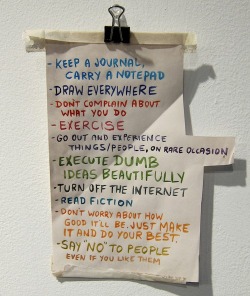 - KEEP A JOURNAL,
CARRY A NOTEPAD
- DRAW EVERYWHERE
- DON'T COMPLAIN ABOUT
WHAT YOU DO
- EXERCISE
- GO OUT AND EXPERIENCE
THINGS/PEOPLE, ON RARE OCCASION
- EXECUTE DUMB
IDEAS BEAUTIFULLY
- TURN OFF THE INTERNET
- READ FICTION
- DON'T WORRY ABOUT HOW
GOOD IT'LL BE. JUST MAKE
IT AND DO YOUR BEST.
- SAY "NO" TO PEOPLE
EVEN IF YOU LIKE THEM